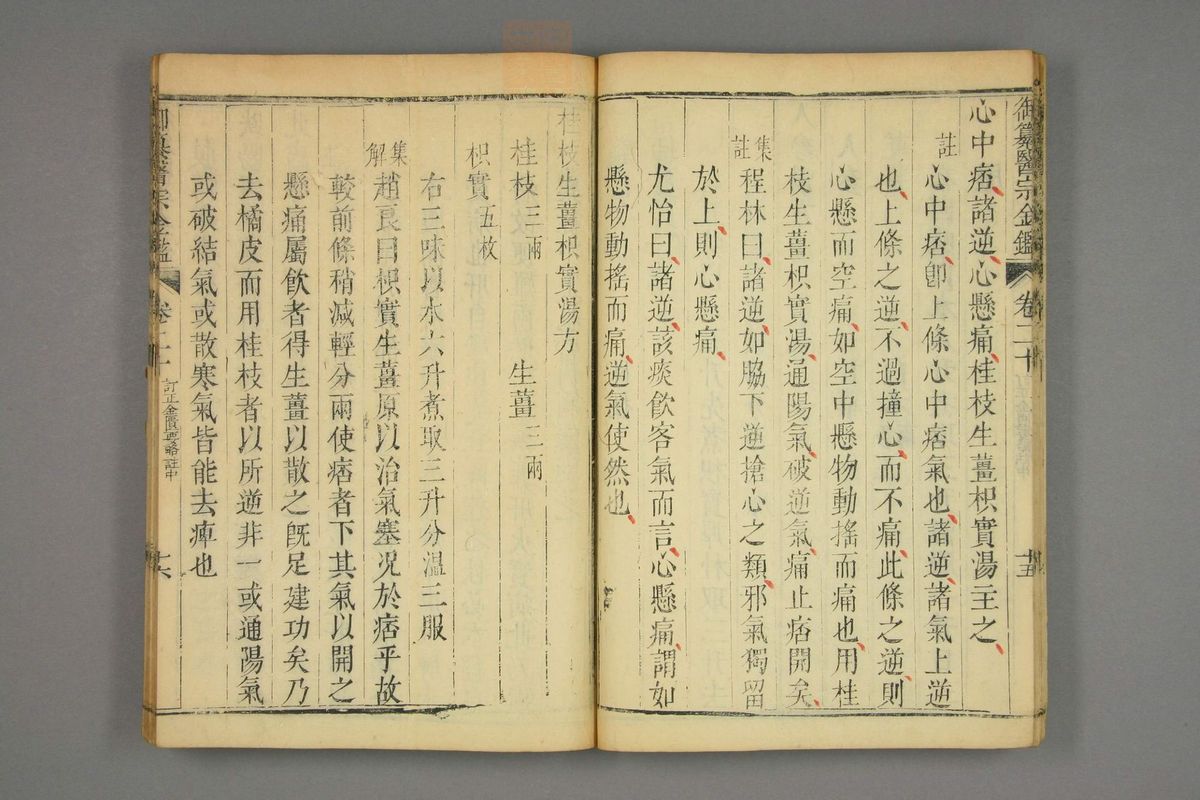 御纂醫宗金鑑 卷二十 十五
心中痞諸逆心懸痛桂枝生薑枳實湯主之
註 心中痞卽上條心中痞氣也諸逆諸氣上逆
也上條之逆不過撞心而不痛此條之逆則
心懸而空痛如空中懸物動搖而痛也用桂
枝生薑枳實湯通陽氣破逆氣痛止痞開矣
集註 程林曰諸逆如脇下逆搶心之類邪氣獨留
於上則心懸痛
尤怡曰諸逆該痰飮客氣而言心懸痛謂如
懸物動搖而痛逆氣使然也
桂枝生薑枳實湯方
桂枝三兩 生薑三兩
枳實五枚
右三味以水六升煮取三升分溫三服
集解 趙良曰枳實生薑原以治氣塞況於痞乎故
較前條稍減輕分兩使痞者下其氣以開之
懸痛屬飮者得生薑以散之旣足建功矣乃
去橘皮而用桂枝者以所逆非一或通陽氣
或破結氣或散寒氣皆能去痺也
御纂醫宗金鑑 卷二十 訂正金匱要略註中 十六